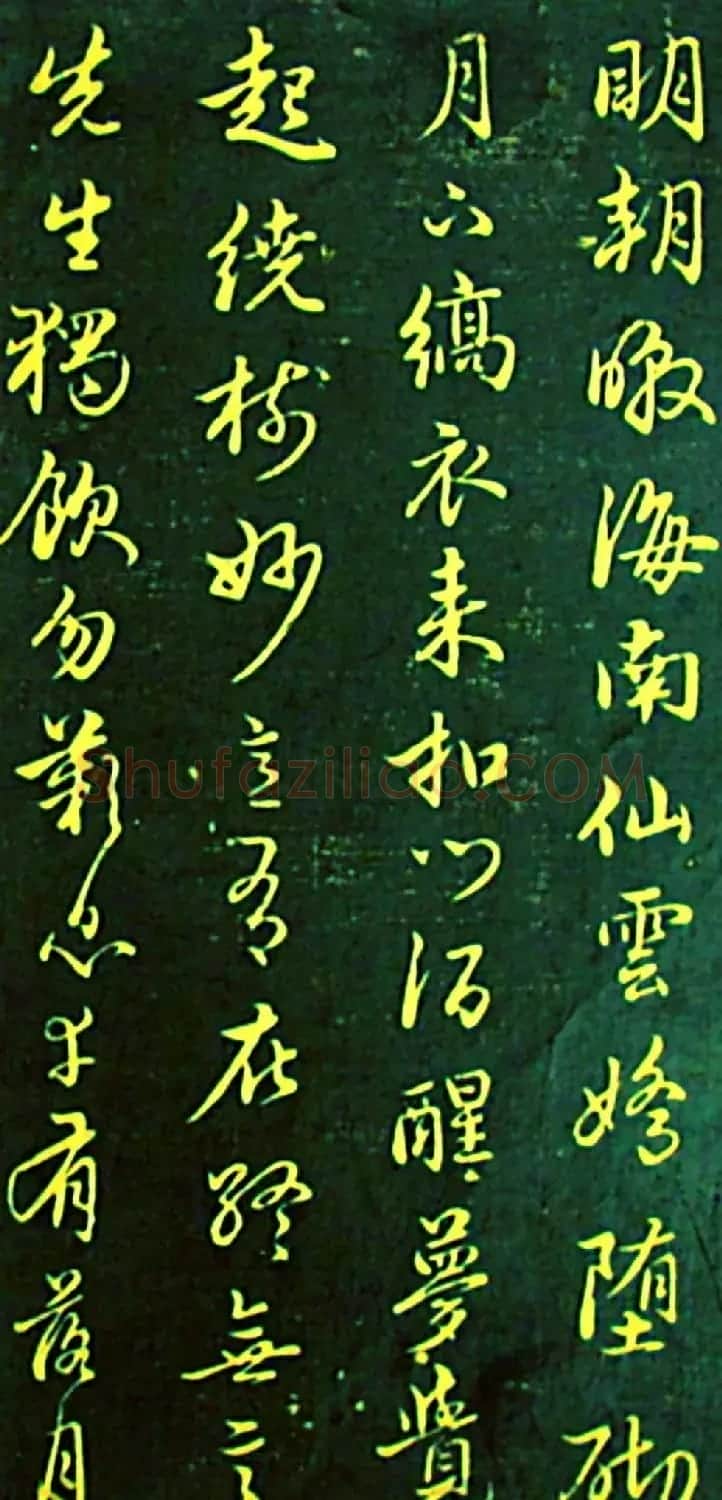 明朝暾海南仙雲嬌堕砌
月下縞衣来扣門酒醒夢覺
起繞樹妙意有在終無言
先生獨飲勿歎息幸有落月
Shufaziliao.COM